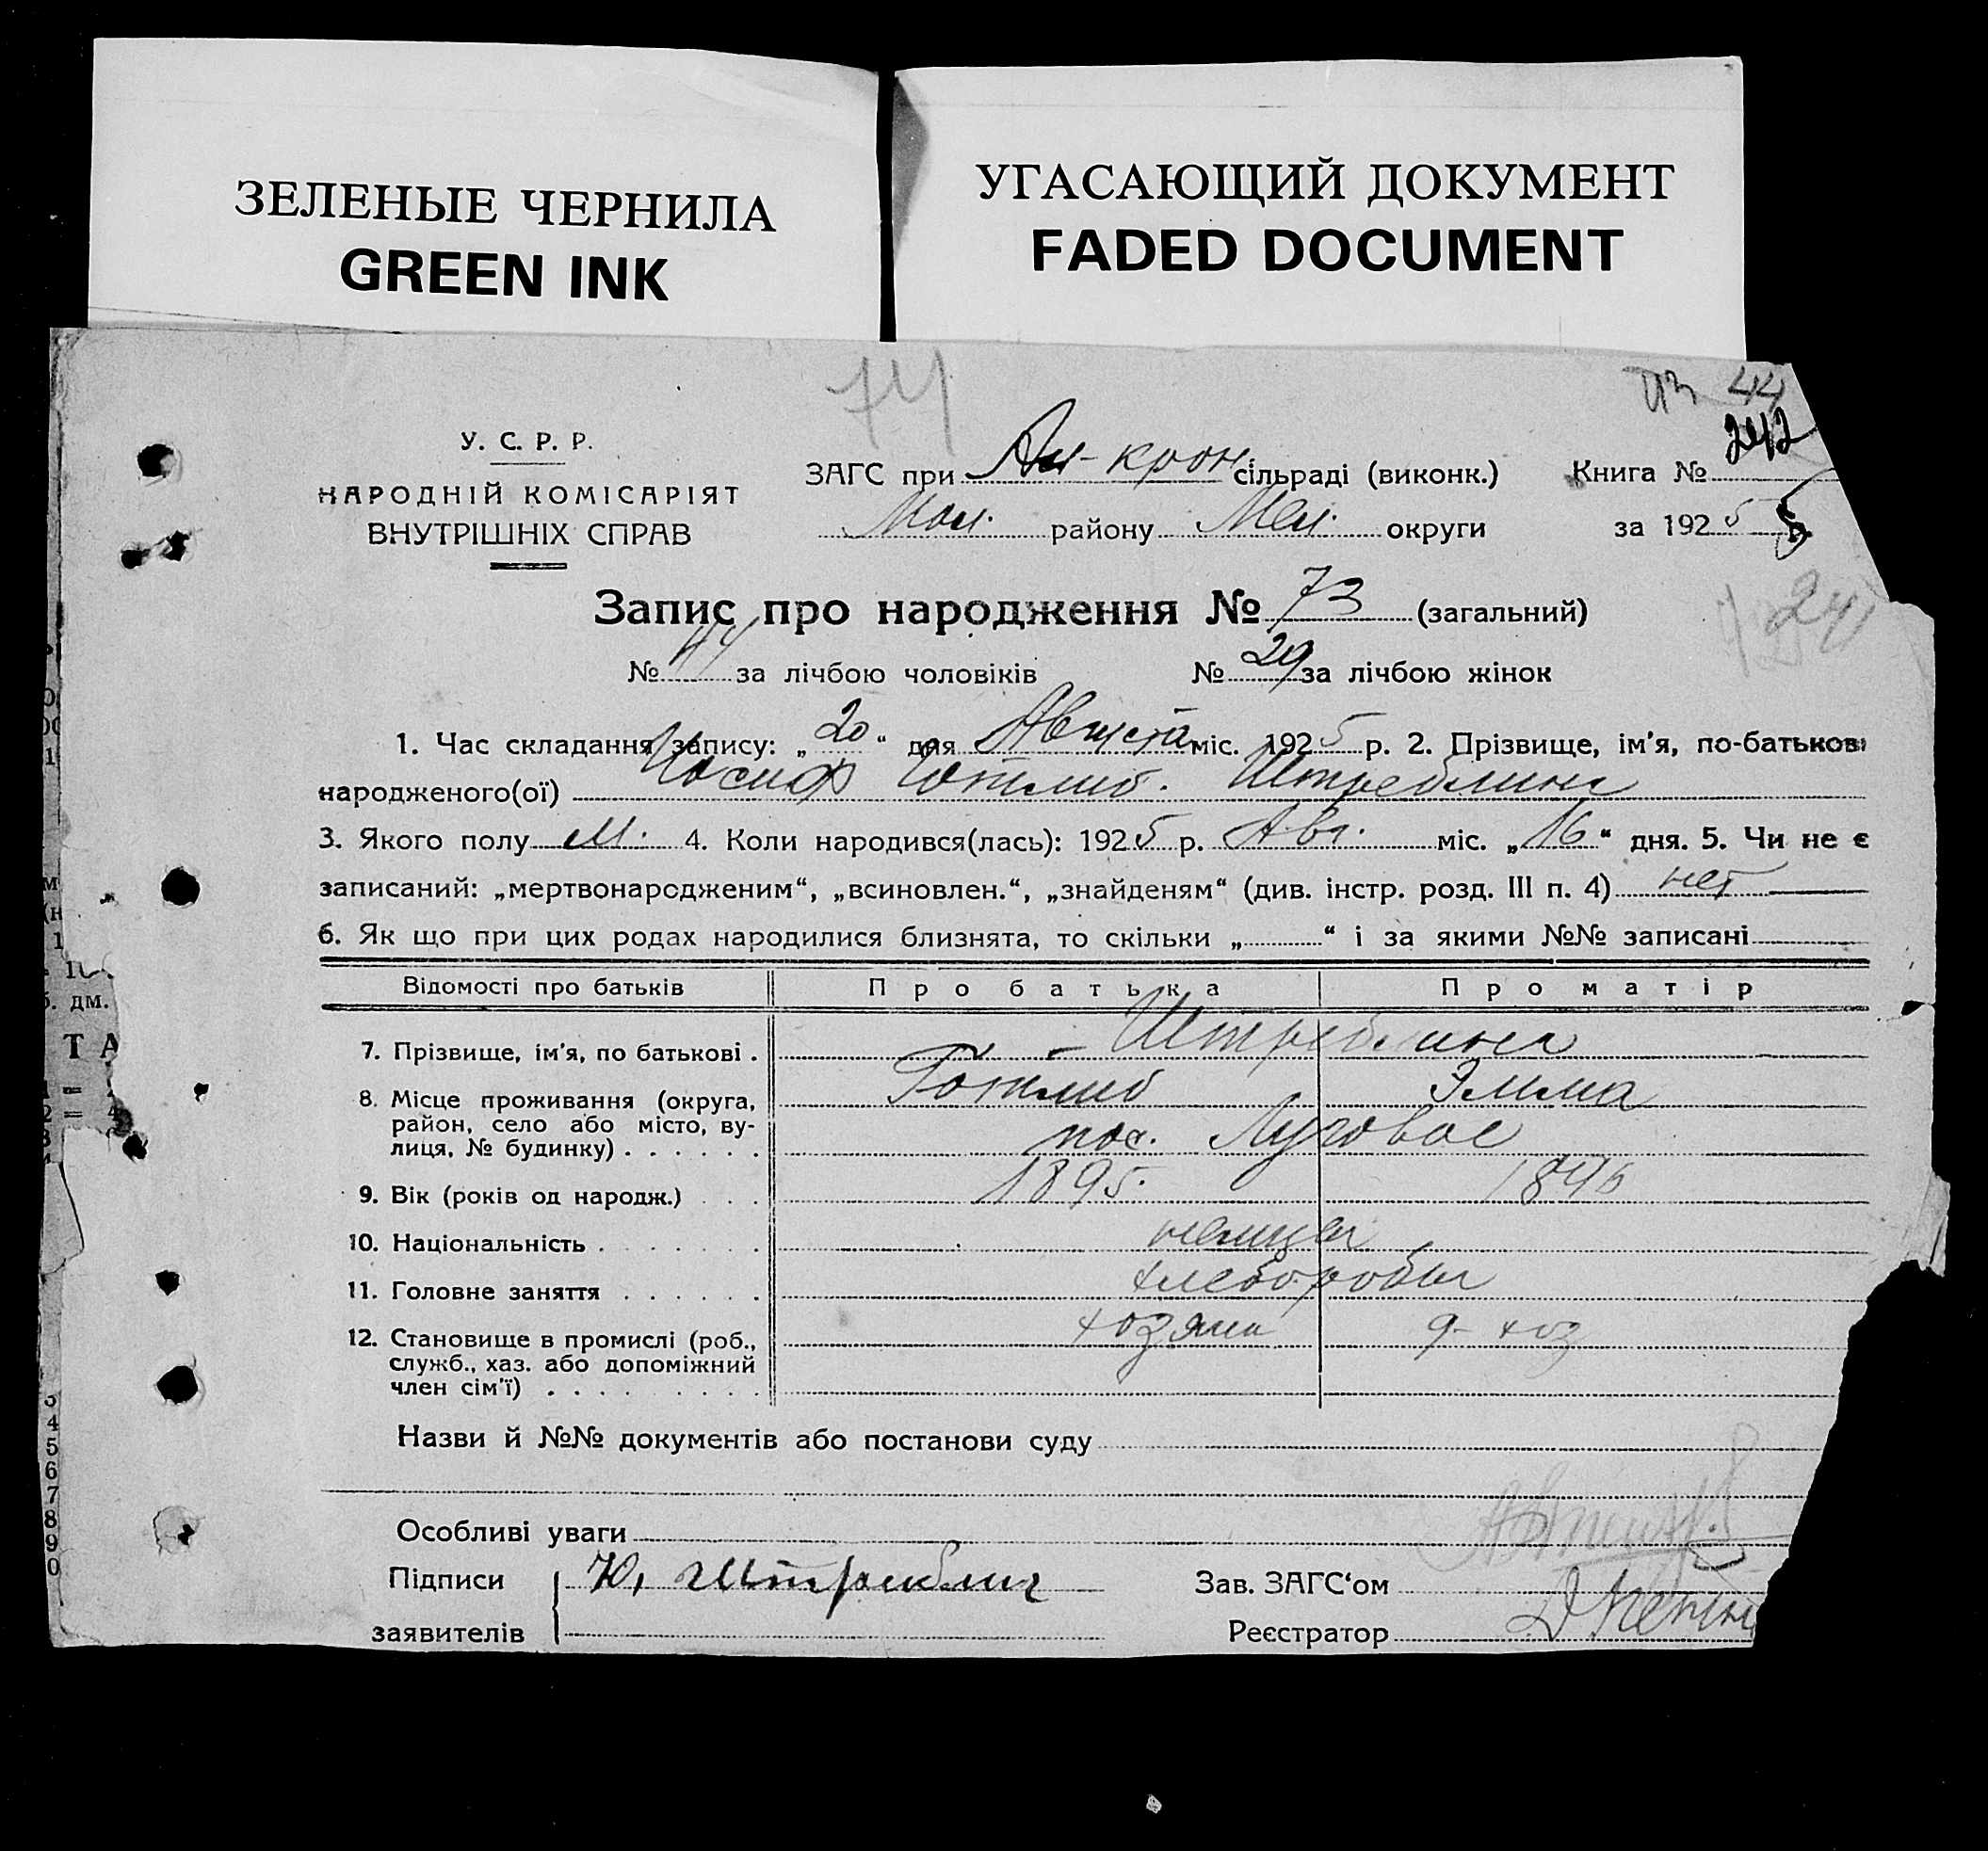 ЗЕЛЕНЫЕ ЧЕРНИЛА
GREEN INK
УГАСАЮЩИЙ ДОКУМЕНТ
FADED DOCUMENT
74
44
242
У. С. Р. Р.
НАРОДНІЙ КОМІСАРІЯТ
ВНУТРІШНІХ СПРАВ
ЗАГС при Ал-крон. сільраді (виконк.) Книга №
Мол. району Мел. округи за 1925
Запис про народження № 73 (загальний)
№ 44 за лічбою чоловіків № 29 за лічбою жінок
1. Час складання запису: „20“ дня Августа міс. 1925 р. 2. Прізвище, ім'я, по-батькові
народженого(ої) Иосиф Готлиб. Штреблинг
3. Якого полу М. 4. Коли народився(лась): 1925 р. Авг. міс. „16“ дня. 5. Чи не є
записаний: „мертвонародженим“, „всиновлен.“, „знайденям“ (див. інстр. розд. III п. 4) нет
6. Як що при цих родах народилися близнята, то скільки „ “ і за якими №№ записані
Відомості про батьків Про батька Про матір
7. Прізвище, ім'я, по батькові . Штреблинг
Готлиб Эмма
8. Місце проживання (округа,
район, село або місто, ву-
лиця, № будинку) . . . . . . пос. Луговое
9. Вік (років од народж.) . . . 1895. 1896
10. Національність . . . . . . . немцы
11. Головне заняття . . . . . . хлеборобы
12. Становище в промислі (роб.,
служб., хаз. або допоміжний
член сім'ї) . . . . . . . . . хозяин д-хоз
Назви й №№ документів або постанови суду
Особливі уваги
Підписи Ю, Штреиблинг
заявителів
Зав. ЗАГС‘ом
Реєстратор